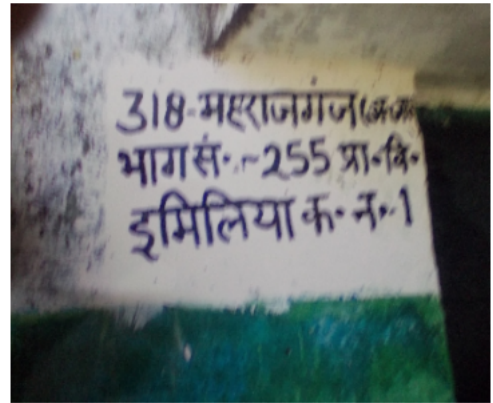 318-महराजगंज(अ.जा.
भाग सं.-255 प्रा.वि.
इमिलिया क.न.-1